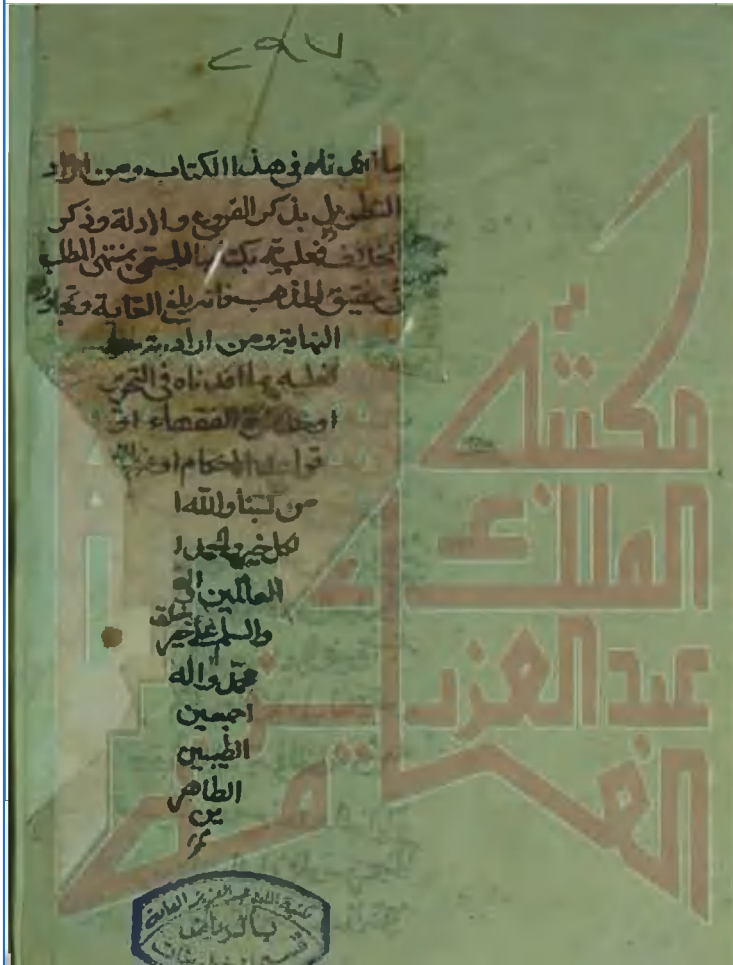 ما اثبتناه في هذا الكتاب ومن اراد
التطويل بذكر الفروع والادلة وذكر
الخلاف فعليه بكتابنا المسمى بمنتهى المطلب
في تحقيق المذهب فانه بلغ الغاية وتجاوز
النهاية ومن اراد
فعليه بما افدناه في التحرير
او تذكرة الفقهاء او
قواعد الاحكام او
من كتبنا والله ا
لكل خير والحمد ا
العالمين
والسلم على خير خلقه
محمد واله
اجمعين
الطيبين
الطاهر
ين
مكتبة
الملك
عبد العزيز
العامة
مكتبة الملك عبد العزيز العامة
بالرياض
قسم المخطوطات